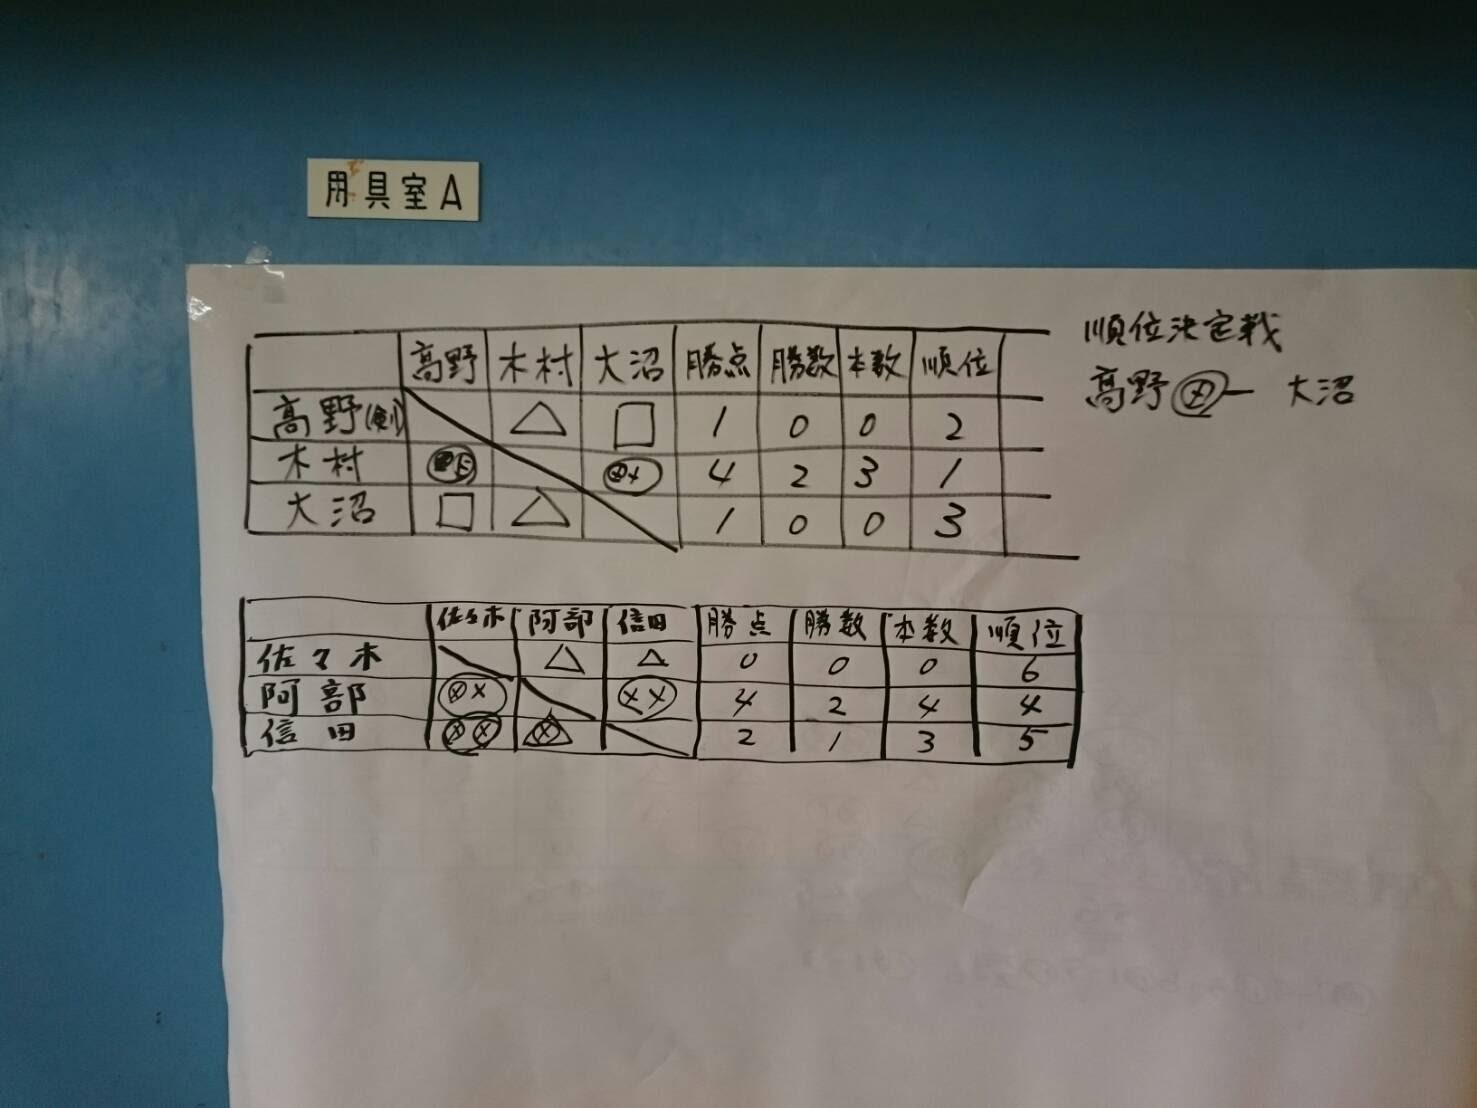 用具室A
高野 木村 大沼 勝点 勝数 本数 順位
高野(剣) △ □ 1 0 0 2
木村 4 2 3 1
大沼 □ △ 1 0 0 3
順位決定戦
高野 ㋱ー 大沼
佐々木 阿部 信田 勝点 勝数 本数 順位
佐々木 △ △ 0 0 0 6
阿部 4 2 4 4
信田 2 1 3 5